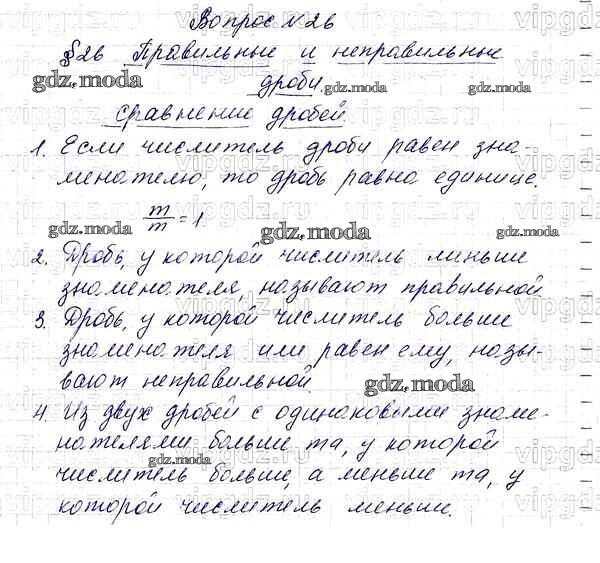 Вопрос №26
§26 Правильные и неправильные
дроби.
сравнение дробей.
1. Если числитель дроби равен зна-
менателю, то дробь равна единице.
m/m = 1
2. Дробь, у которой числитель меньше
знаменателя, называют правильной
3. Дробь, у которой числитель больше
знаменателя или равен ему, назы-
вают неправильной.
4. Из двух дробей с одинаковыми знаме-
нателями больше та, у которой
числитель больше, а меньше та, у
которой числитель меньше.
gdz.moda
gdz.moda
gdz.moda
gdz.moda
gdz.moda
gdz.moda
gdz.moda
gdz.moda
vipgdz.ru